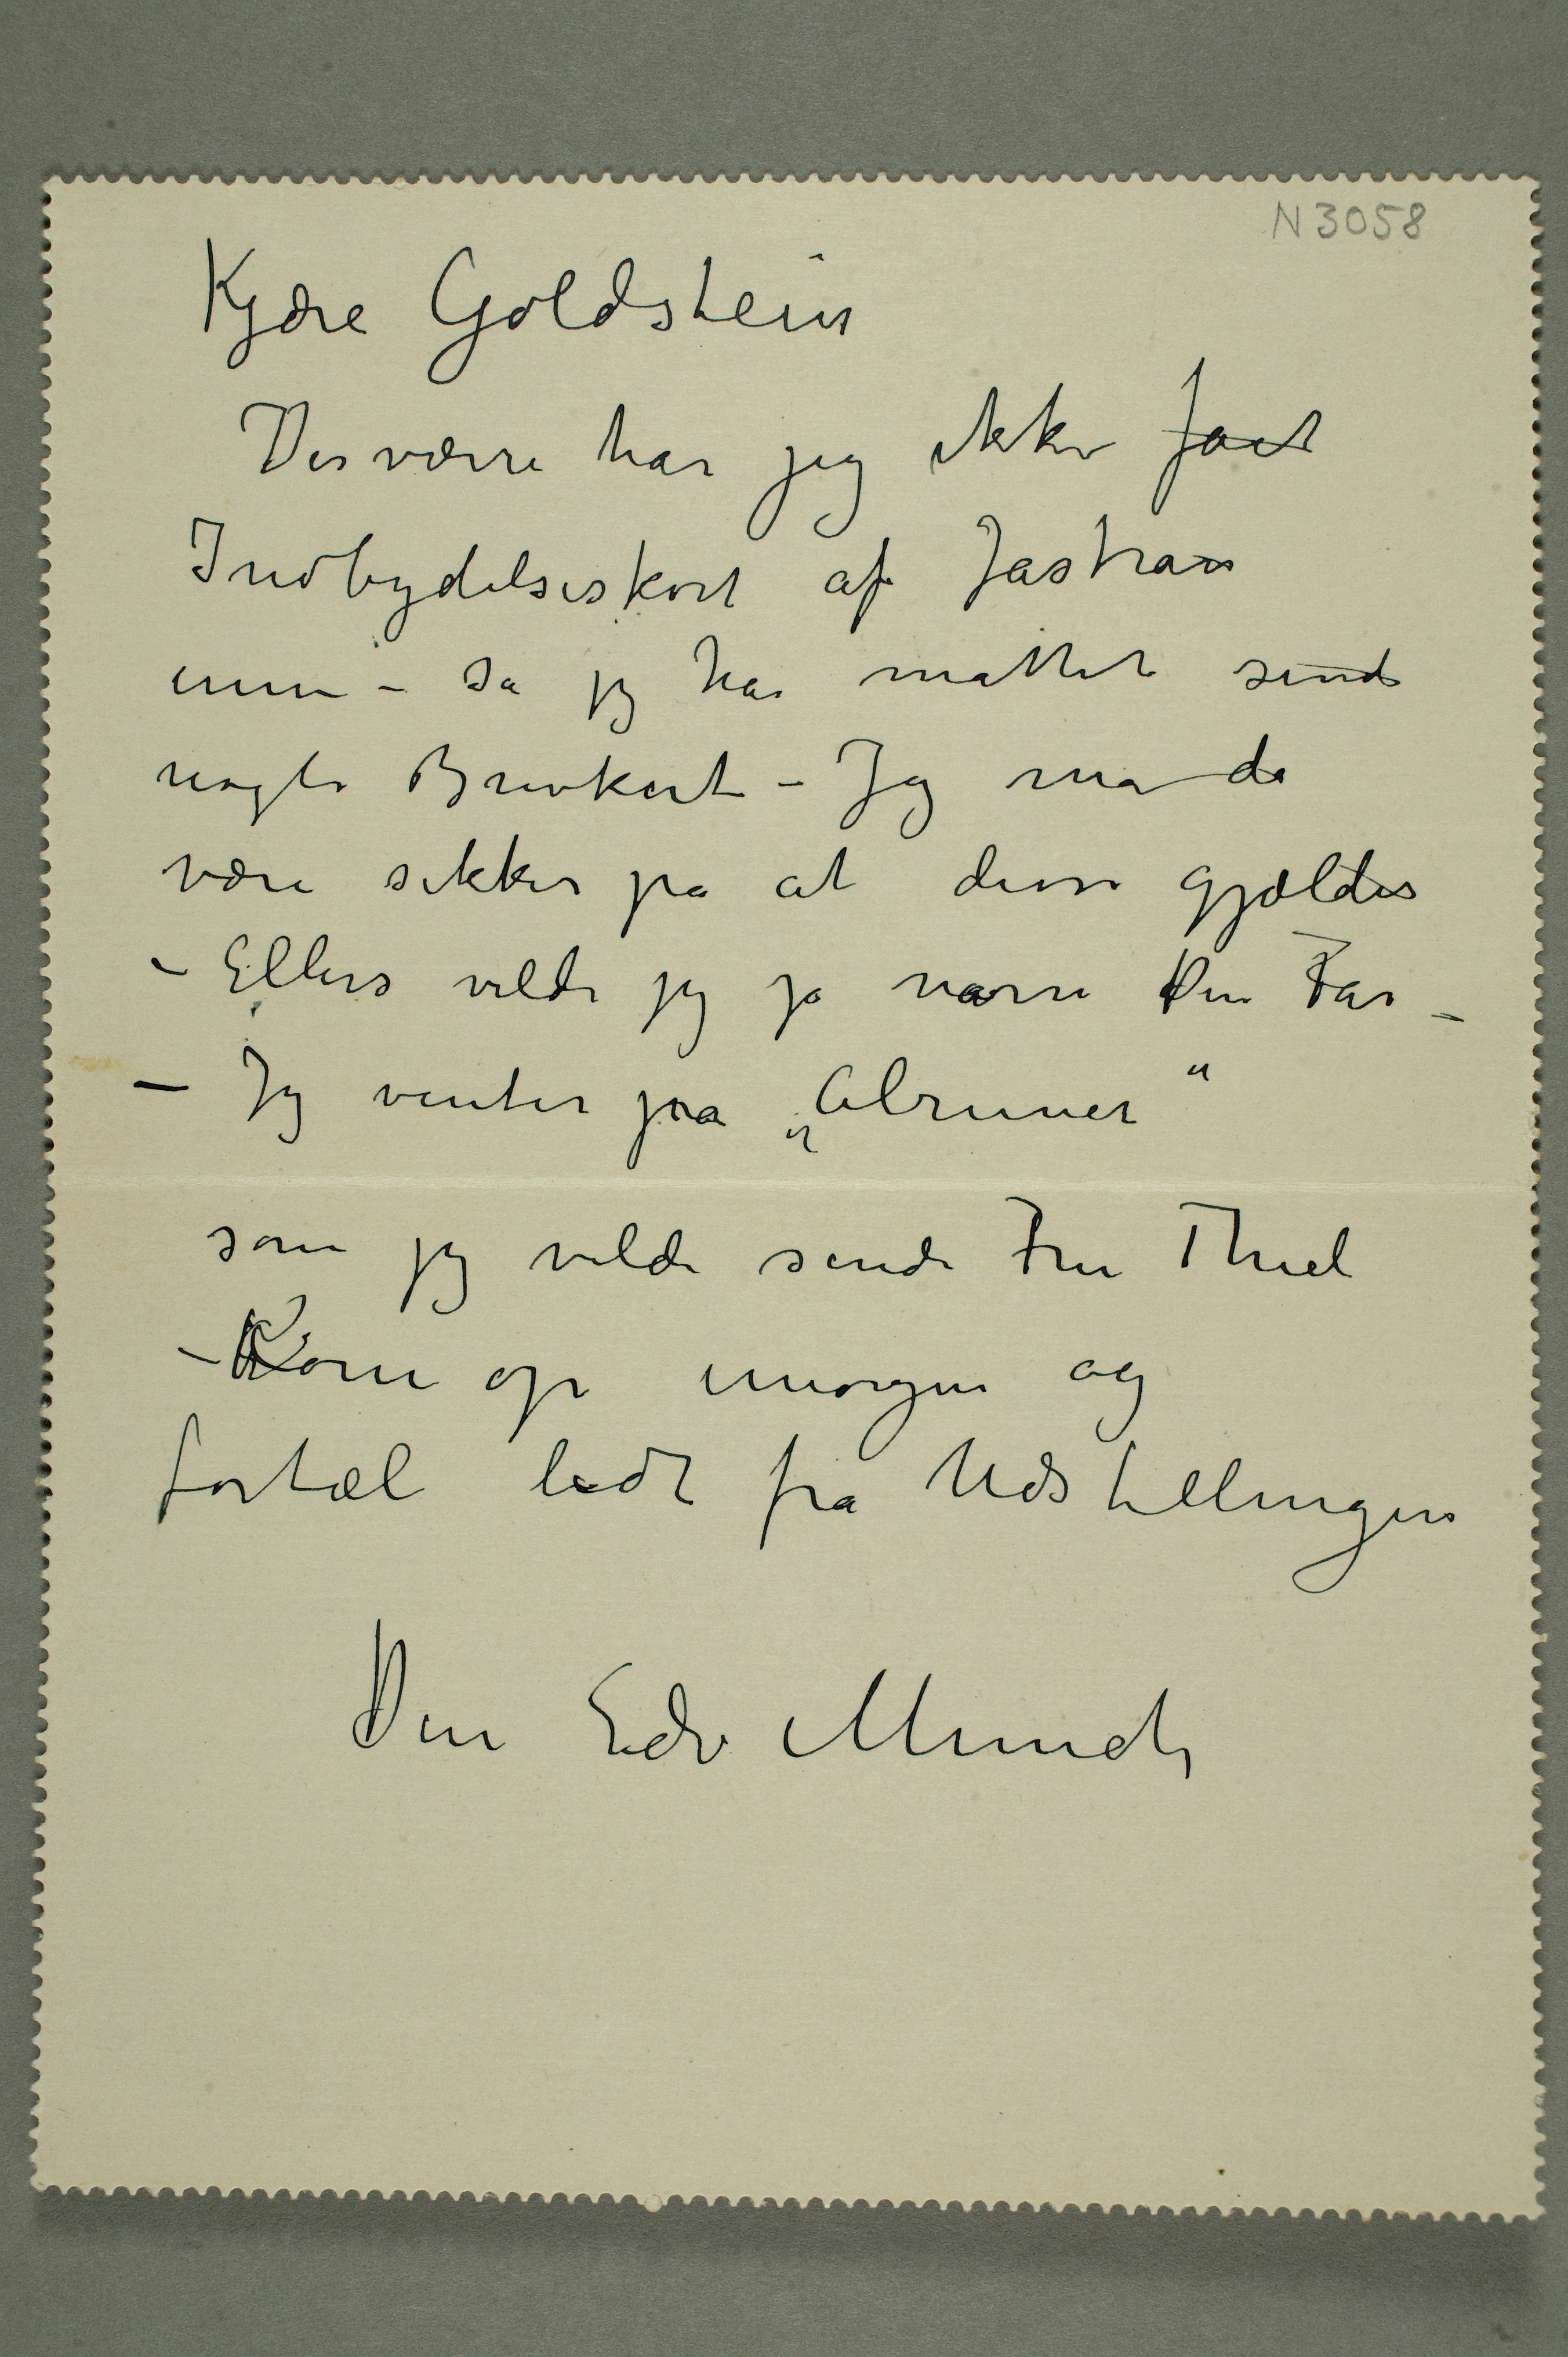 N 3058
Kjære Goldstein
Desværre har jeg ikke faet
Indbydelseskort af Jastrau
ennu – Sa jeg har mattet sende
nogle Brevkort – Jeg ma da
være sikker pa at disse gjælder
– Ellers vilde jeg jo narre Din Far –
– Jeg venter pa „Alruner“
som jeg vilde sende Fru Thiel
– Kom op imorgen og
fortæl lidt fra Udstillingen
Din Edv Munch